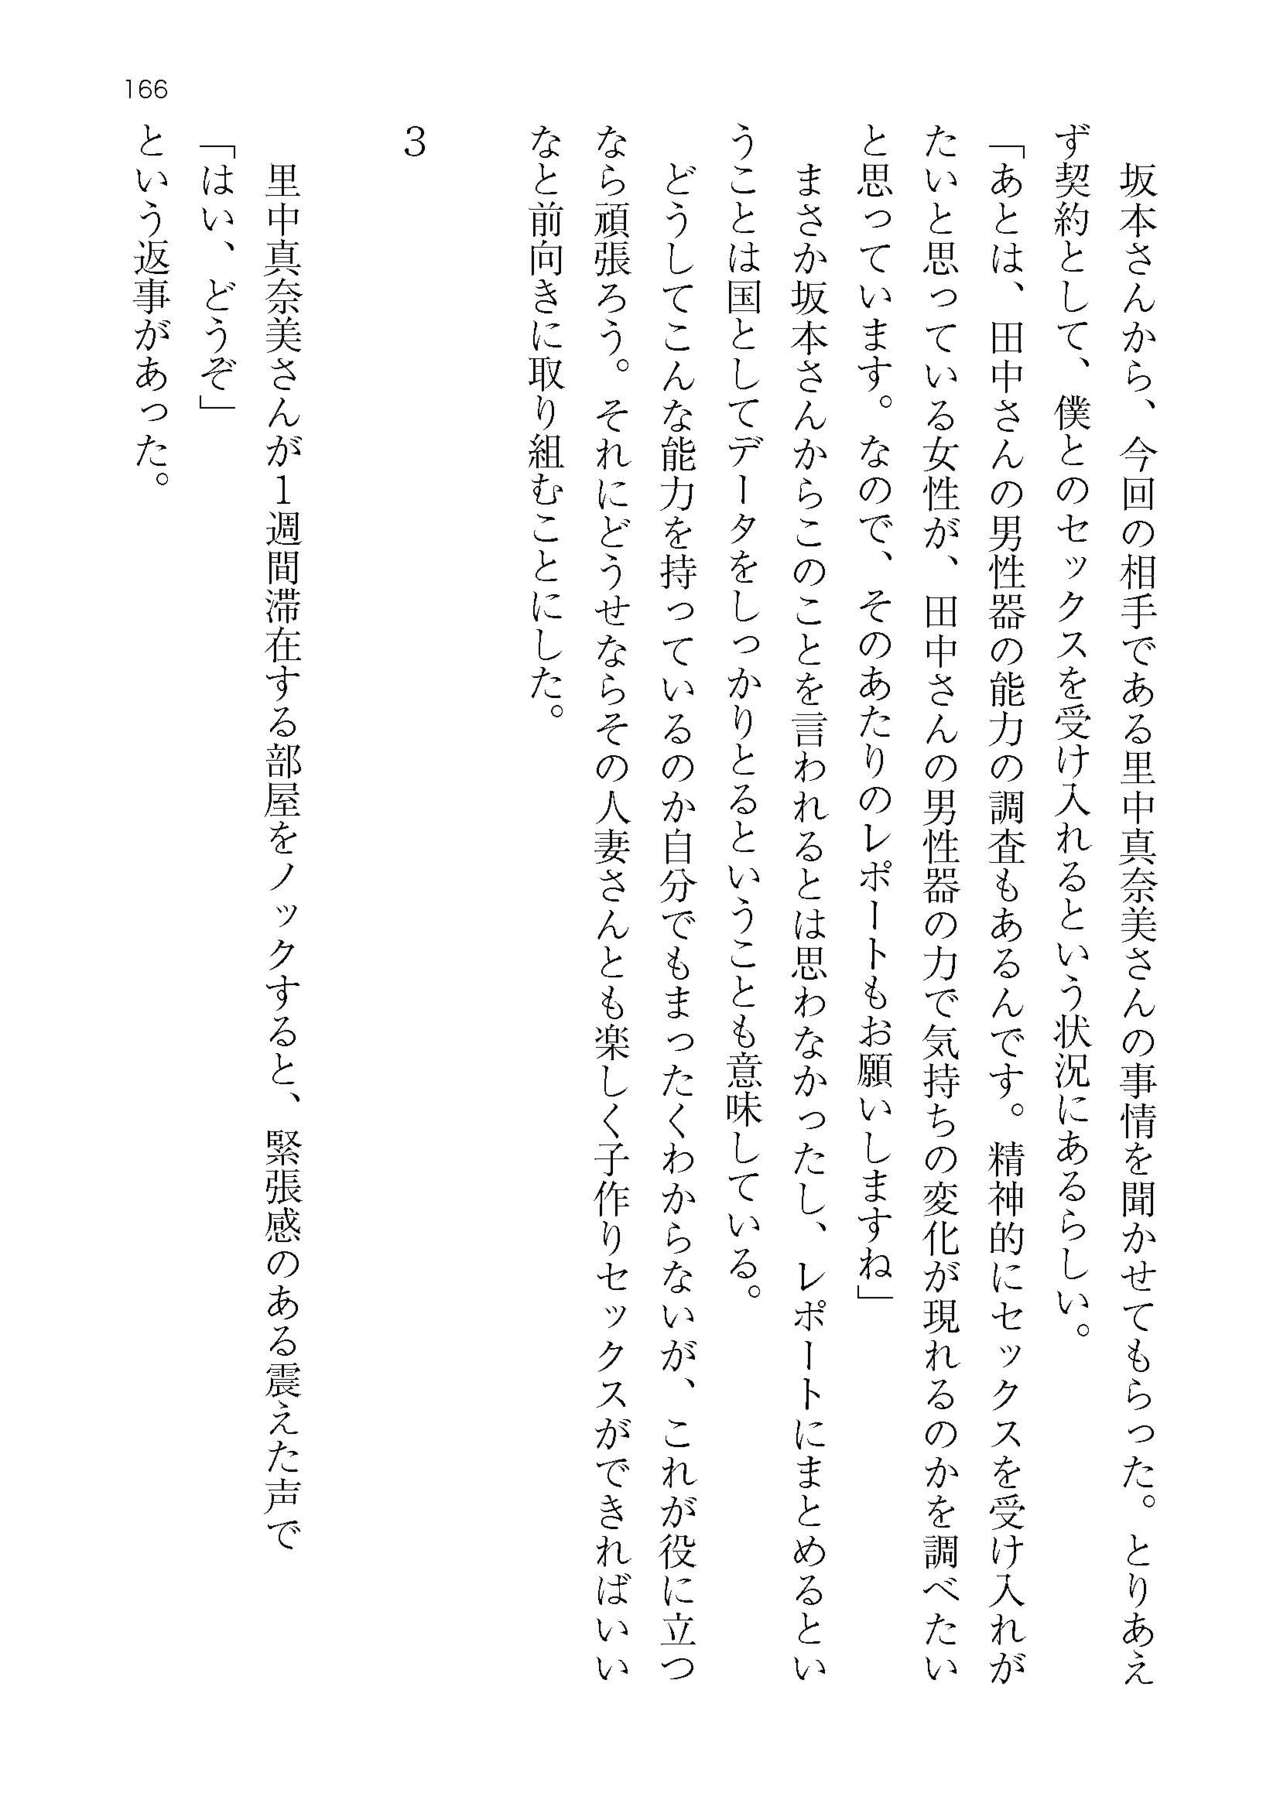 166
坂本さんから、今回の相手である里中真奈美さんの事情を聞かせてもらった。とりあえ
ず契約として、僕とのセックスを受け入れるという状況にあるらしい。
「あとは、田中さんの男性器の能力の調査もあるんです。精神的にセックスを受け入れが
たいと思っている女性が、田中さんの男性器の力で気持ちの変化が現れるのかを調べたい
と思っています。なので、そのあたりのレポートもお願いしますね」
まさか坂本さんからこのことを言われるとは思わなかったし、レポートにまとめるとい
うことは国としてデータをしっかりとるということも意味している。
どうしてこんな能力を持っているのか自分でもまったくわからないが、これが役に立つ
なら頑張ろう。それにどうせならその人妻さんとも楽しく子作りセックスができればいい
なと前向きに取り組むことにした。
3
里中真奈美さんが1週間滞在する部屋をノックすると、緊張感のある震えた声で
「はい、どうぞ」
という返事があった。